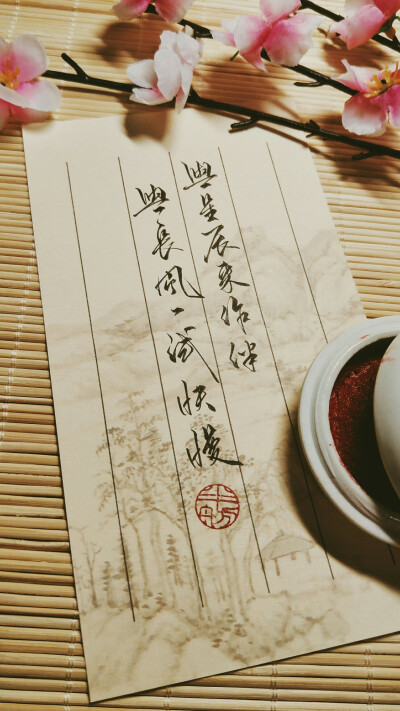 與星辰來作伴
與長風一試快慢